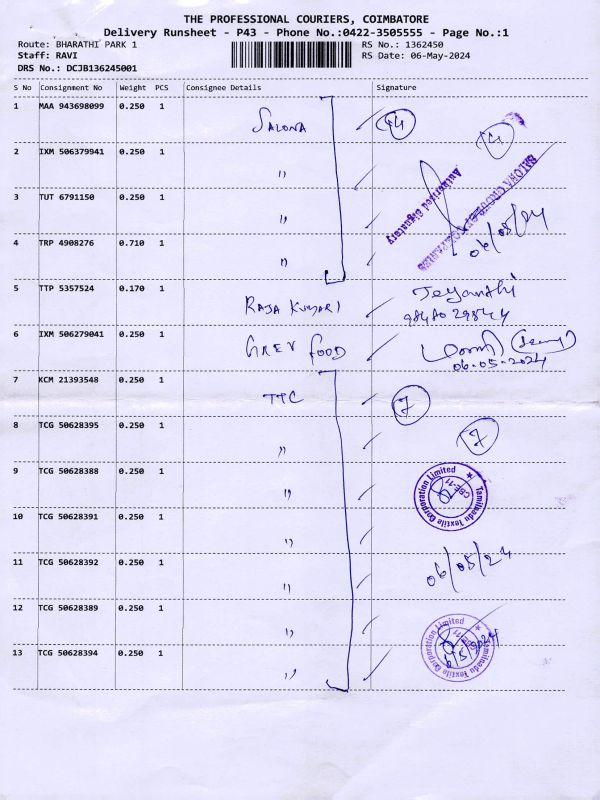 THE PROFESSIONAL COURIERS, COIMBATORE
Delivery Runsheet - P43 - Phone No.:0422-3505555 - Page No.:1
Route: BHARATHI PARK 1 RS No.: 1362450
Staff: RAVI RS Date: 06-May-2024
DRS No.: DCJB136245001
S No Consignment No Weight PCS Consignee Details Signature
1 MAA 943698099 0.250 1 SALONA 44
4
2 IXM 506379941 0.250 1 "
Authorised Signatory
3 TUT 6791150 0.250 1 "
06/05/24
4 TRP 4908276 0.710 1 "
5 TTP 5357524 0.170 1 RAJA KUMARI Jeyanthi
98480 29844
6 IXM 506279041 0.250 1 GREY FOOD
06-05-2024
7 KCM 21393548 0.250 1 TTC 7
8 TCG 50628395 0.250 1 " 7
9 TCG 50628388 0.250 1 " Tamilnadu Textile Corporation Limited
CBE-11
10 TCG 50628391 0.250 1 "
11 TCG 50628392 0.250 1 " 06/05/24
12 TCG 50628389 0.250 1 " Tamilnadu Textile Corporation Limited
CBE-11
6/5/2024
13 TCG 50628394 0.250 1 "